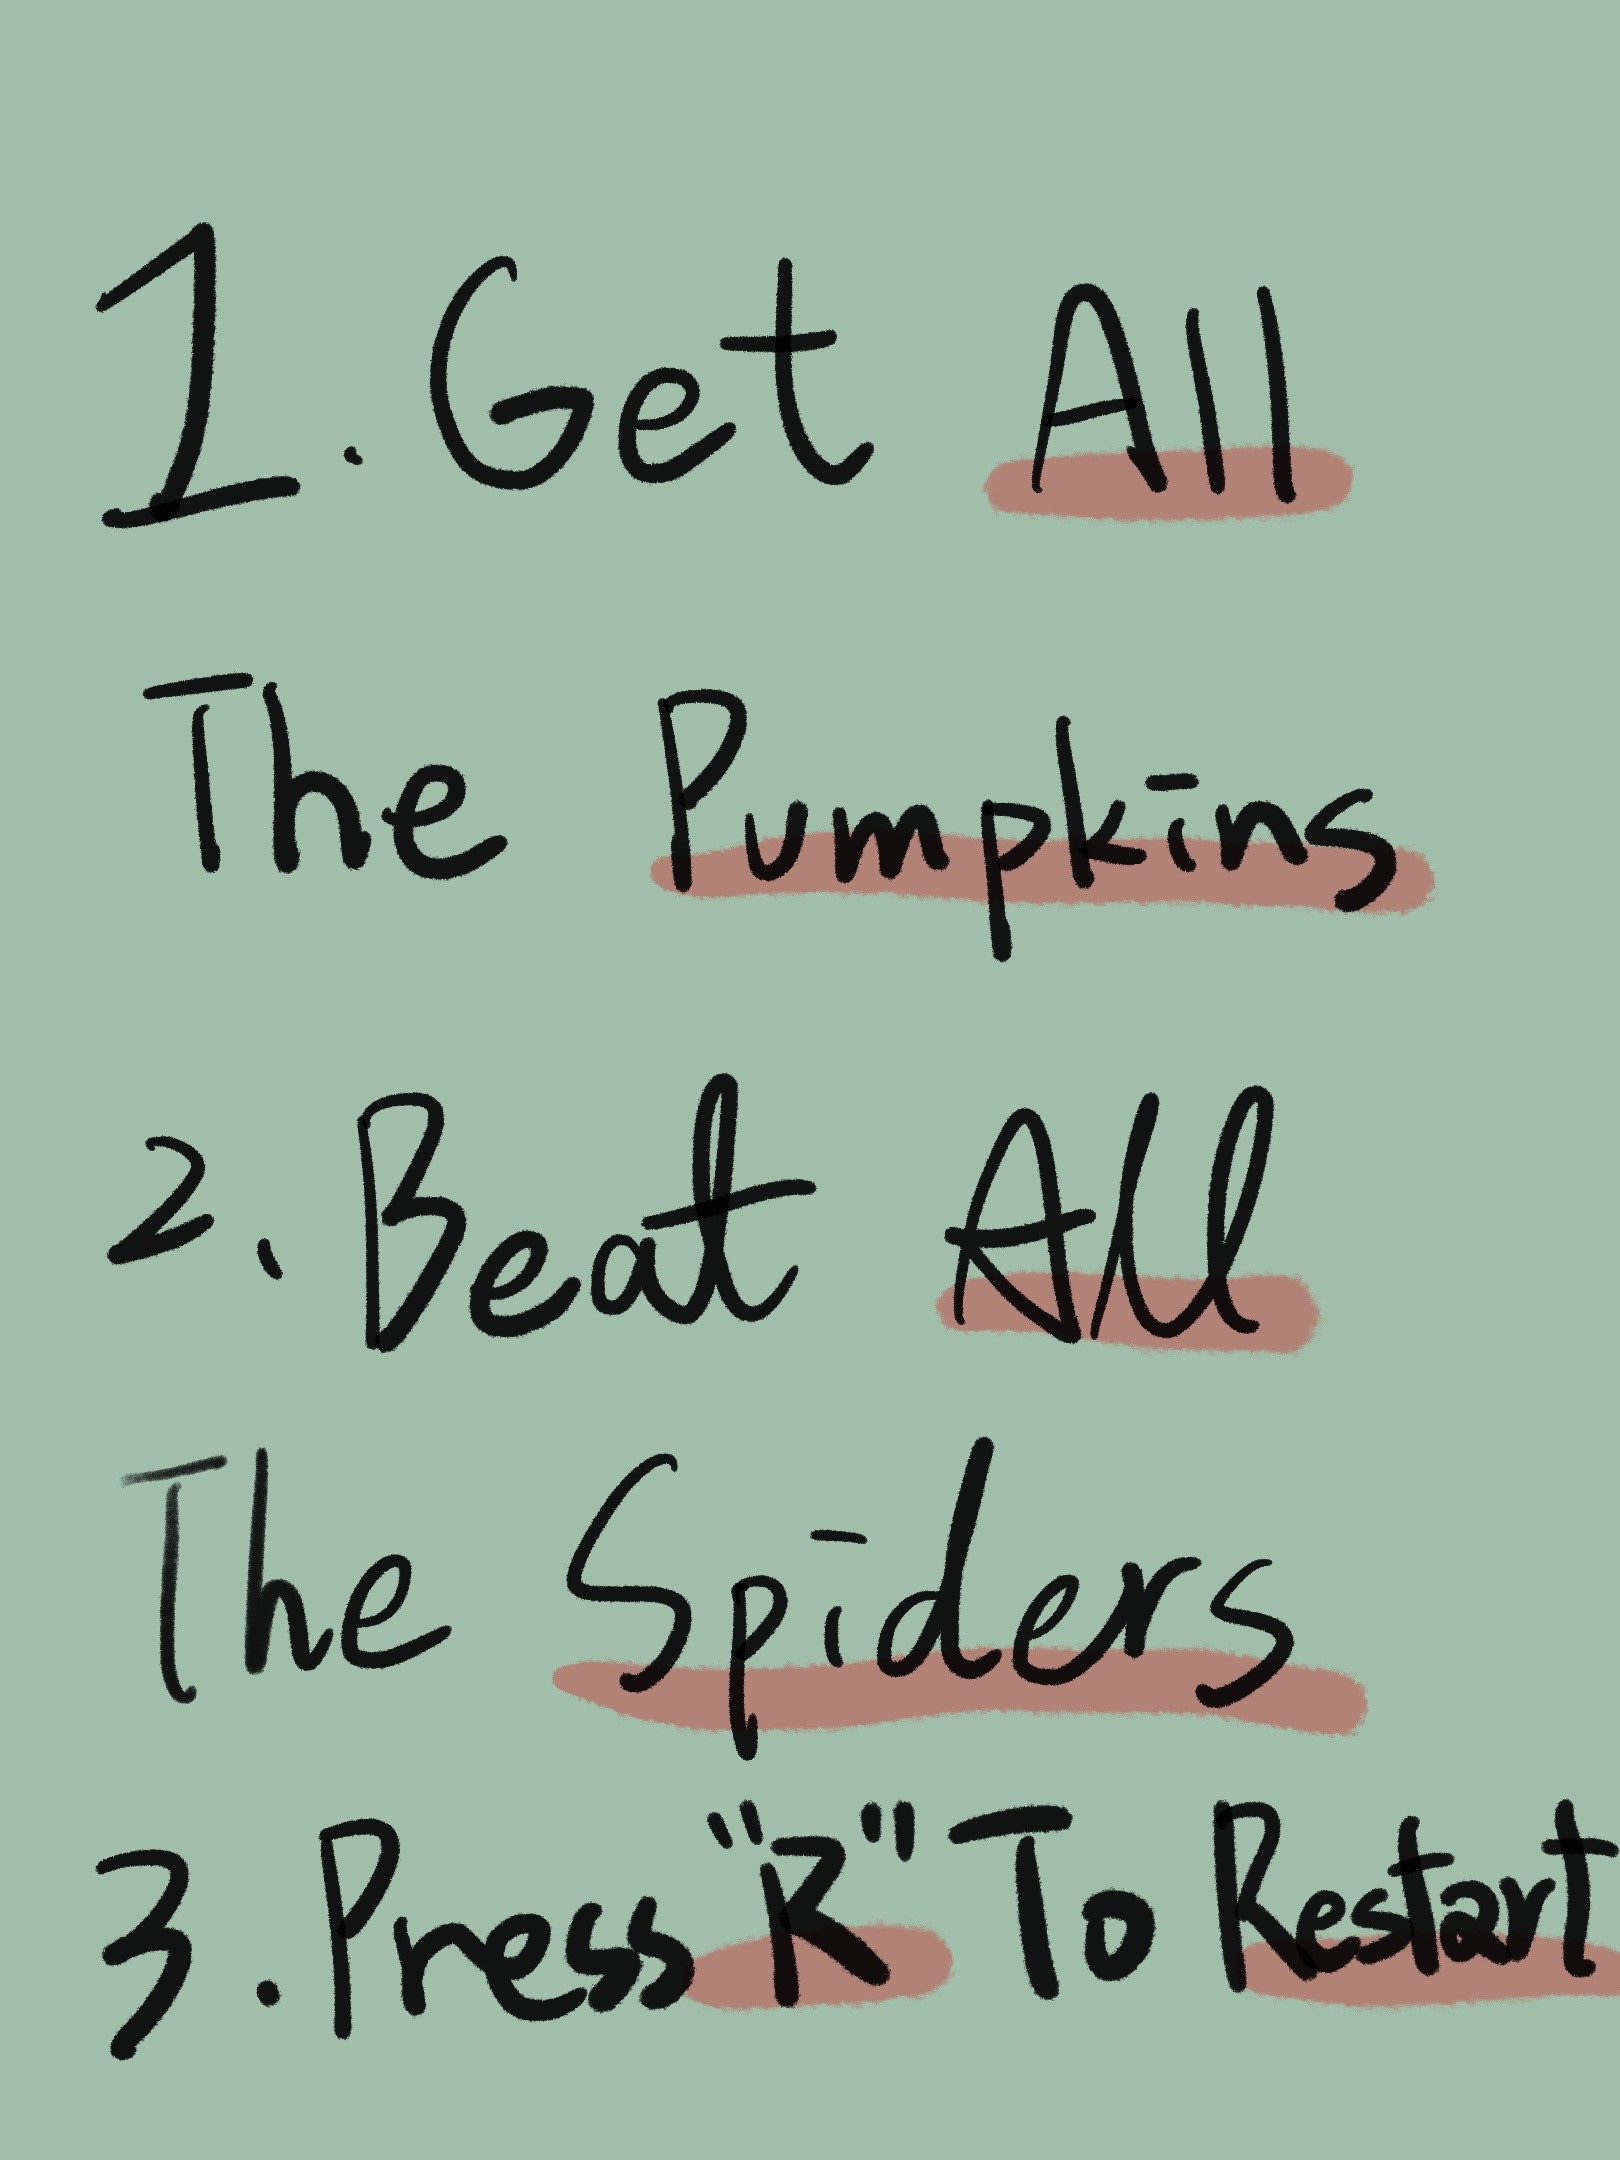 1. Get All
The Pumpkins
2. Beat All
The Spiders
3. Press "R" To Restart